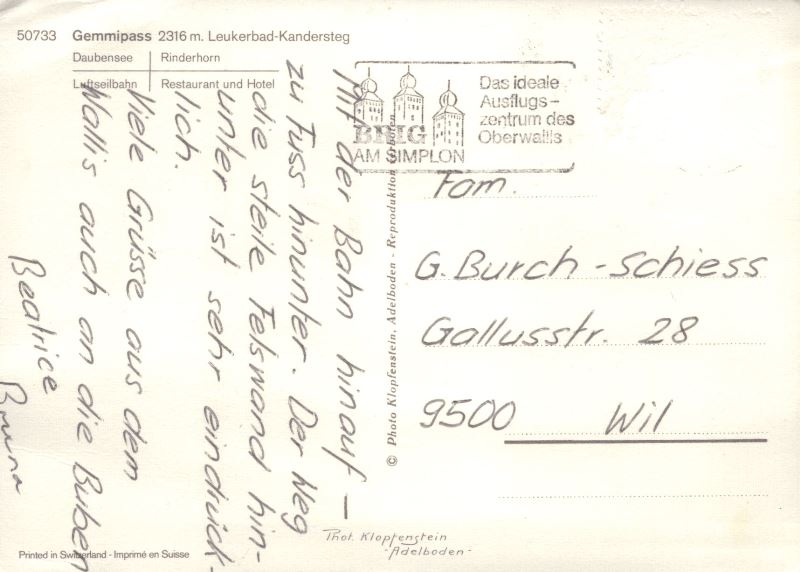 50733 Gemmipass 2316 m. Leukerbad-Kandersteg
Daubensee Rinderhorn
Luftseilbahn Restaurant und Hotel
Mit der Bahn hinauf –
zu Fuss hinunter. Der Weg
die steile Felswand hin-
unter ist sehr eindrück-
lich.
Viele Grüsse aus dem
Wallis auch an die Buben
Beatrice
Bruna
BRIG
AM SIMPLON
Das ideale
Ausflugs-
zentrum des
Oberwallis
Fam.
G. Burch-Schiess
Gallusstr. 28
9500 Wil
© Photo Klopfenstein, Adelboden - Reproduktion verboten
Phot. Klopfenstein
-Adelboden-
Printed in Switzerland - Imprimé en Suisse